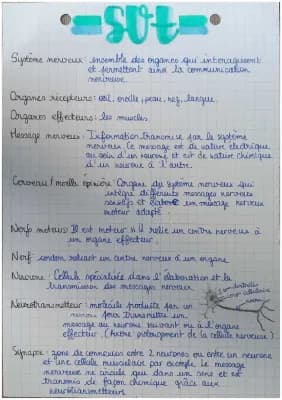 SVT
Système nerveux : ensemble des organes qui interagissent
et permettent ainsi la communication
nerveuse.
Organes récepteurs : œil, oreille, peau, nez, langue.
Organes effecteurs : les muscles.
Message nerveux : Information transmise par le système
nerveux. Ce message est de nature électrique
au sein d'un neurone et est de nature chimique
d'un neurone à l'autre.
Cerveau / moelle épinière : Organe du système nerveux qui
intègre différents messages nerveux
sensitifs et élabore un message nerveux
moteur adapté.
Nerfs moteurs : Il est moteur s'il relie un centre nerveux à
un organe effecteur.
Nerf : cordon reliant un centre nerveux à un organe
Neurone : Cellule spécialisée dans l'élaboration et la
transmission des messages nerveux.
Neurotransmetteur : molécule produite par un
neurone pour transmettre un
message au neurone suivant ou à l'organe
effecteur. (prolongement de la cellule nerveuse)
Synapse : zone de connexion entre 2 neurones ou entre un neurone
et une cellule musculaire par exemple. Le message
nerveux ne circule que dans un sens et est
transmis de façon chimique grâce aux
neurotransmetteurs